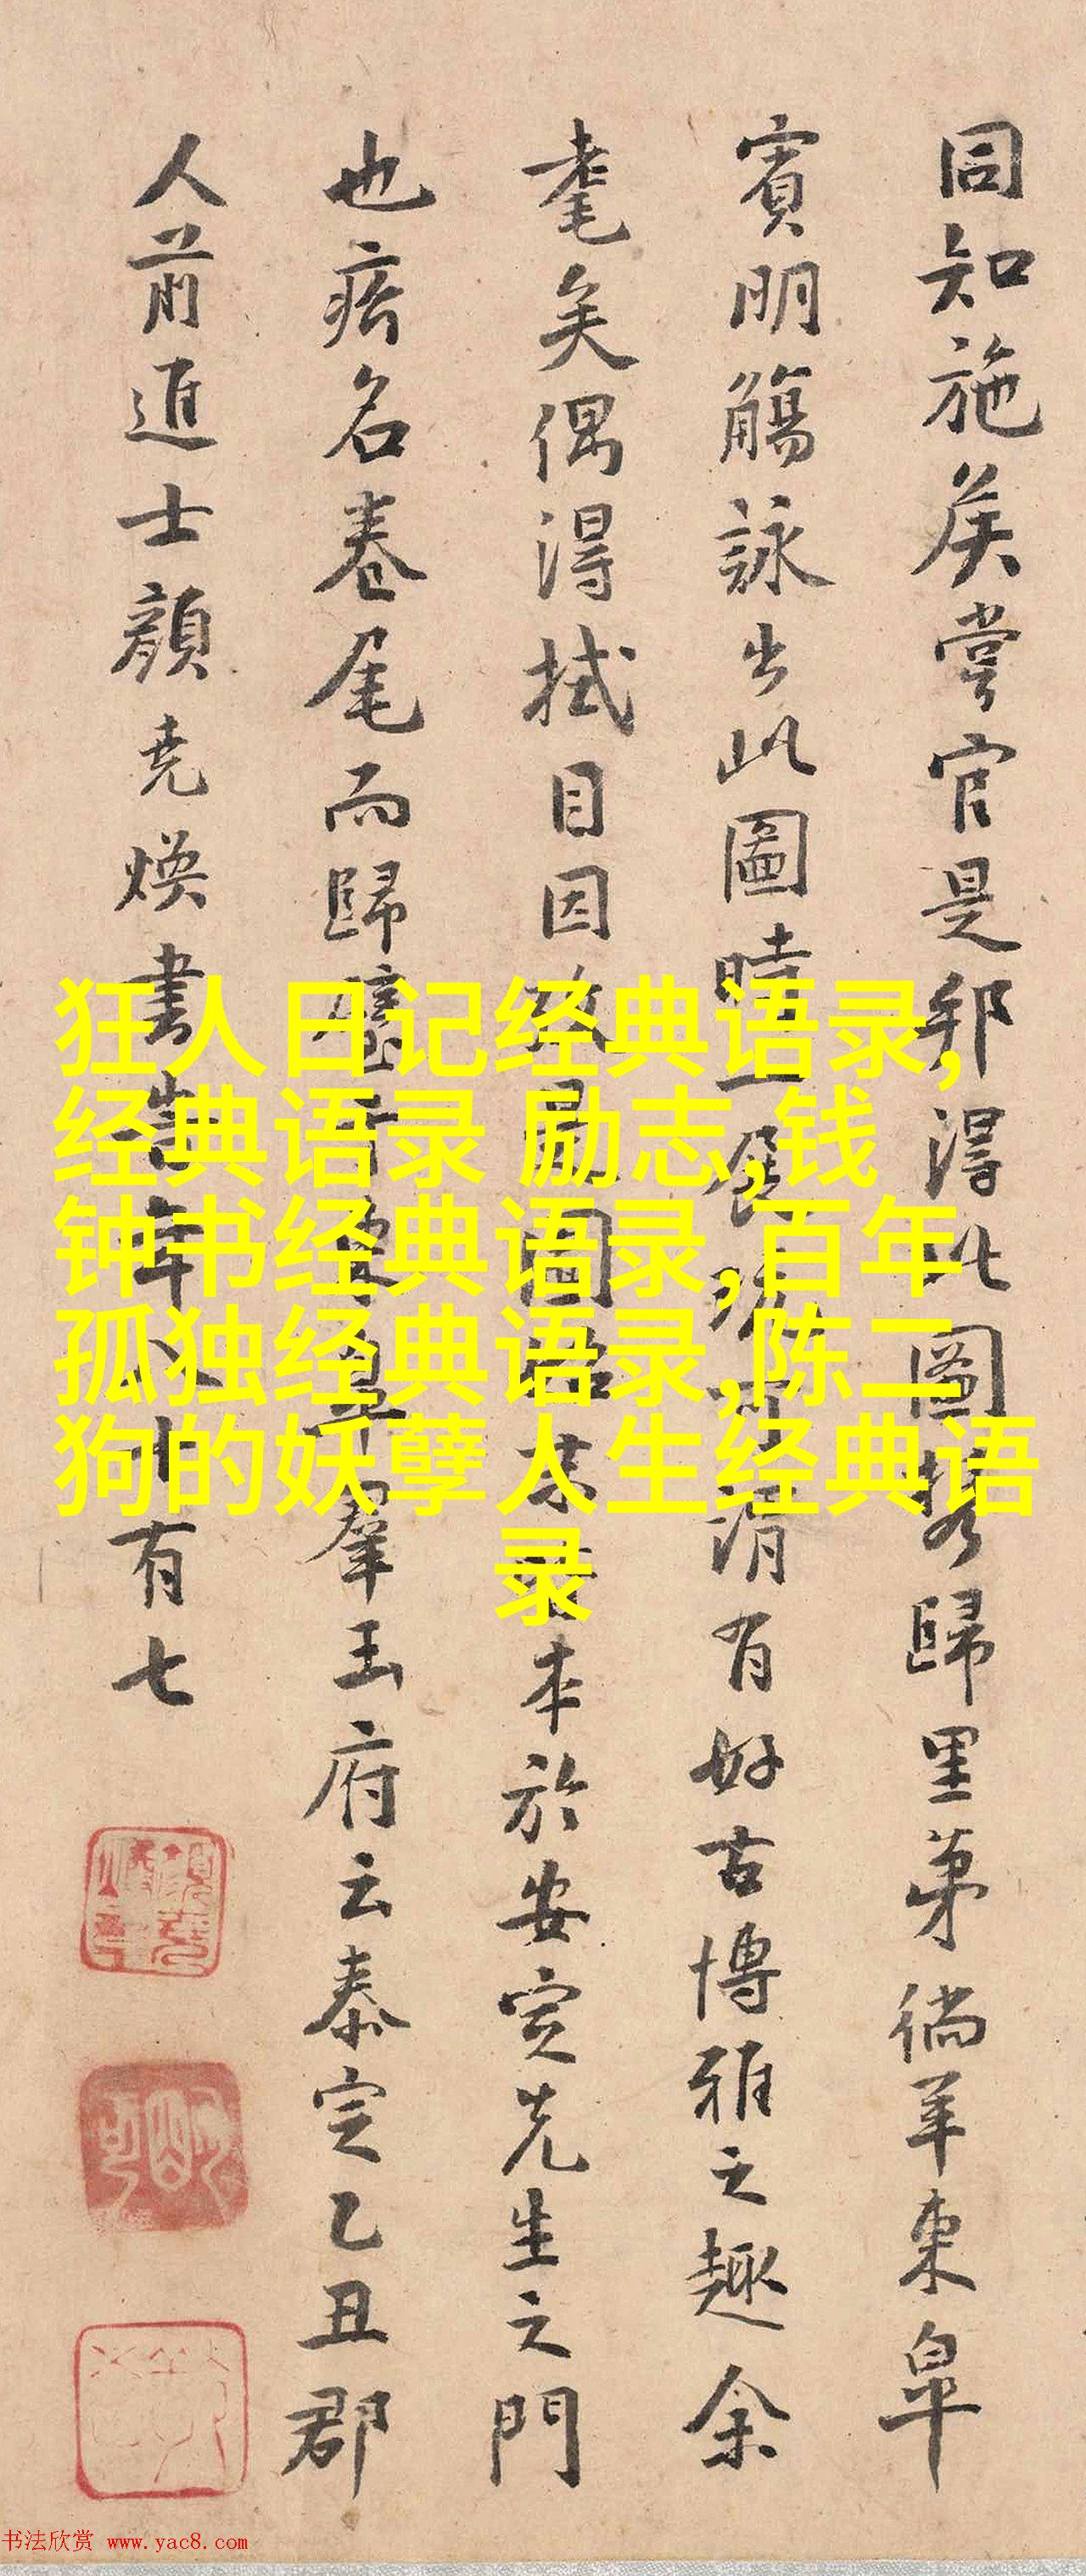 同知施矦嘗官是邦得此圖携歸里第徜羊東皐
賓明觴詠出此圖時一展玩可謂有好古博雅之趣余
耄矣偶得拭目因圖本於安定先生之門
也名卷尾而歸羣玉府云泰定乙丑郡
人前進士顔堯煥書旹年八十有七
狂人日记经典语录,
经典语录 励志,钱
钟书经典语录,百年
孤独经典语录,陈二
狗的妖孽人生经典语
录
书法欣赏 www.yac8.com